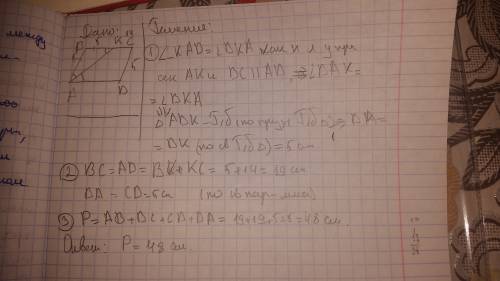 между
Дано:
Решение:
B K C
5
A D
① ∠KAD = ∠BKA как н л у при
сек AK и BC || AD, ⇒ ∠BAK =
= ∠BKA
△ABK – р/б (по призн р/б △) ⇒ BA =
= BK (по св р/б △) = 5 см
② BC = AD = BK + KC = 5 + 14 = 19 см
BA = CD = 5 см (по св пар-мма)
③ P = AB + BC + CD + DA = 19 + 19 + 5 + 5 = 48 см.
Ответ: P = 48 см.